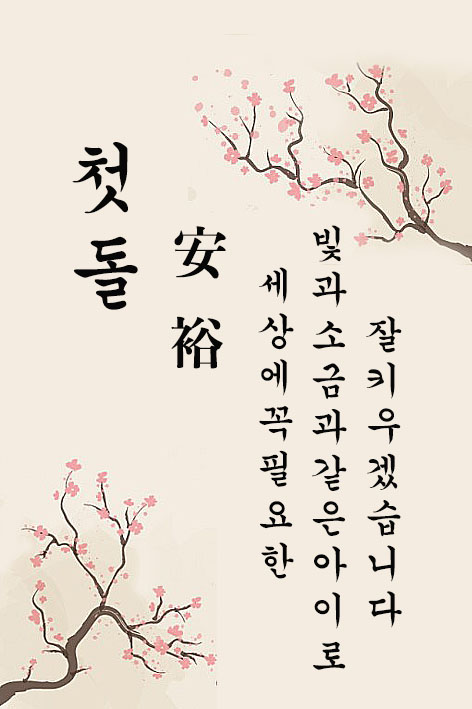 첫돌
安裕
세상에꼭필요한
빛과소금과같은아이로
잘키우겠습니다